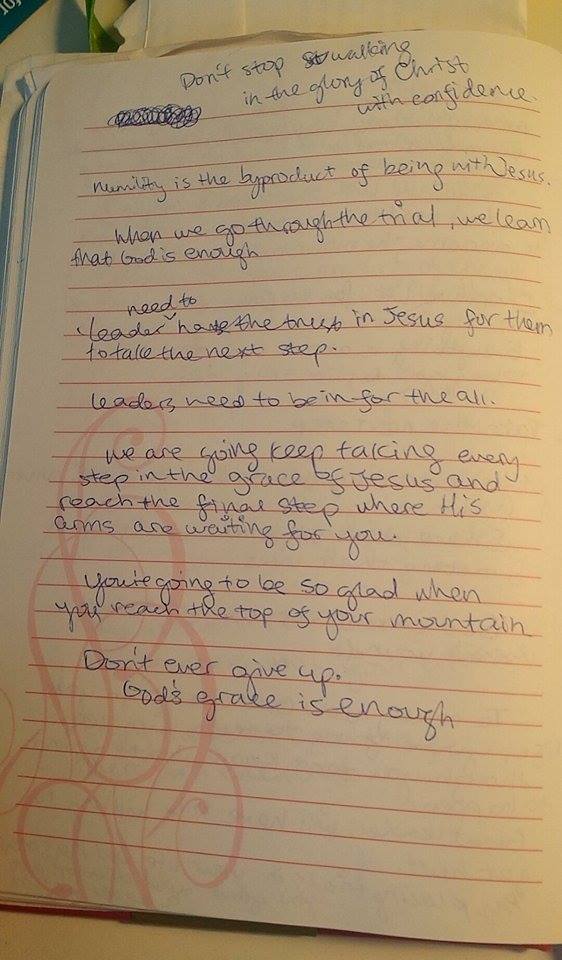 Don't stop walking
in the glory of Christ
with confidence.
Humility is the byproduct of being with Jesus.
When we go through the trial, we learn
that God is enough
need to
leader have the trust in Jesus for them
to take the next step.
Leaders need to be in for the all.
We are going keep taking every
step in the grace of Jesus and
reach the final step where His
arms are waiting for you.
You're going to be so glad when
you reach the top of your mountain
Don't ever give up.
God's grace is enough